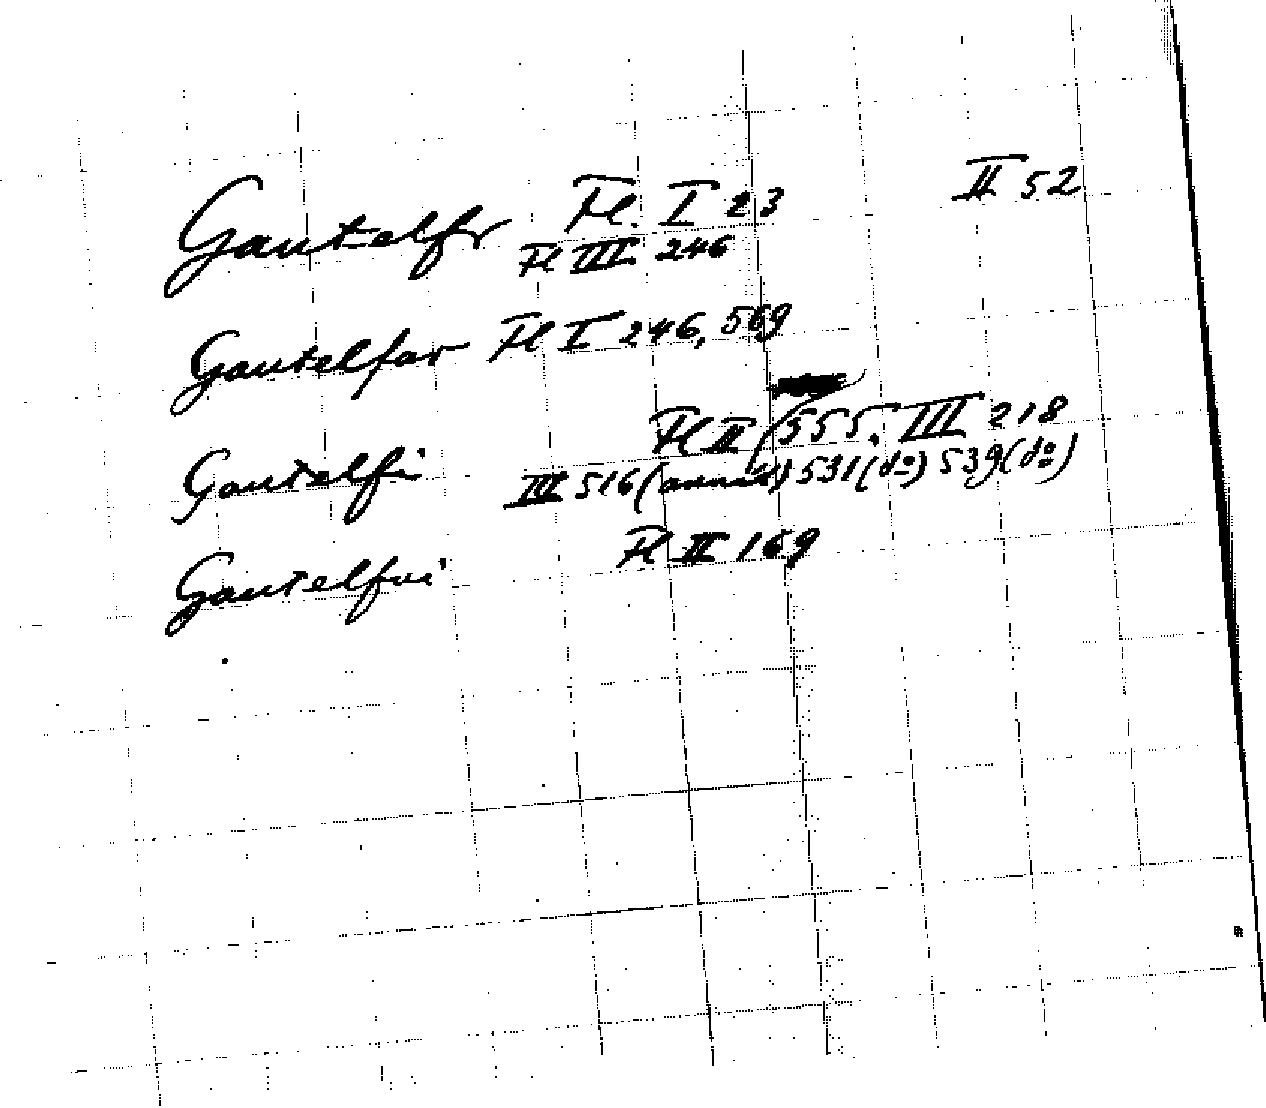 Gautelfr Fl. I 23 II 52
Fl III 246
Gautelfar Fl I 246, 569
Fl II 555. III 218
Gautelfi III 516 (annað) 531 (dº) 539 (dº)
Gautelfui Fl II 169